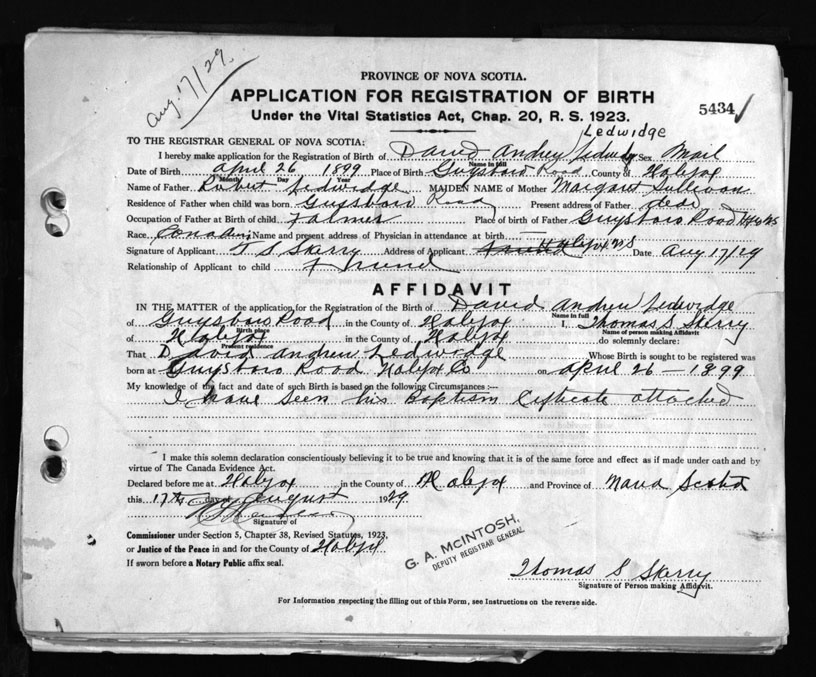 Aug. 17/29
PROVINCE OF NOVA SCOTIA.
APPLICATION FOR REGISTRATION OF BIRTH
5434
Under the Vital Statistics Act, Chap. 20, R. S. 1923.
Ledwidge
TO THE REGISTRAR GENERAL OF NOVA SCOTIA:
I hereby make application for the Registration of Birth of David Andrew Ledwidge Sex Mail
Name in full
Date of Birth April 26 1899 Place of Birth Guysboro Road County of Halifax
Month Day Year
Name of Father Robert Ledwidge MAIDEN NAME of Mother Margaret Sullivan
Residence of Father when child was born Guysboro Road Present address of Father dede
Occupation of Father at Birth of child Falmer Place of birth of Father Guysboro Road Hfx NS
Race Name and present address of Physician in attendance at birth
Signature of Applicant T S Skerry Address of Applicant Halifax N S Date Aug 17/29
Relationship of Applicant to child
AFFIDAVIT
IN THE MATTER of the application for the Registration of the Birth of David Andrew Ledwidge
Name in full
of Guysboro Road in the County of Halifax I, Thomas S Skerry
Birth place Name of person making Affidavit
of Halifax in the County of Halifax do solemnly declare:
Present residence
That David Andrew Ledwidge Whose Birth is sought to be registered was
born at Guysboro Road Halifax Co on April 26 - 1899
My knowledge of the fact and date of such Birth is based on the following Circumstances:—
I have seen his Baptism attached
I make this solemn declaration conscientiously believing it to be true and knowing that it is of the same force and effect as if made under oath and by
virtue of The Canada Evidence Act.
Declared before me at Halifax in the County of Halifax and Province of Nova Scotia
this 17th day of August 1929.
Signature of
Commissioner under Section 5, Chapter 38, Revised Statutes, 1923,
or Justice of the Peace in and for the County of Halifax
If sworn before a Notary Public affix seal.
G. A. MCINTOSH,
DEPUTY REGISTRAR GENERAL
Thomas S Skerry
Signature of Person making Affidavit.
For Information respecting the filling out of this Form, see Instructions on the reverse side.